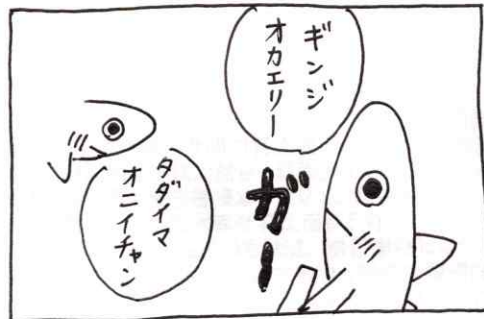 ギンジ
オカエリー
ガー
タダイマ
オニイチャン